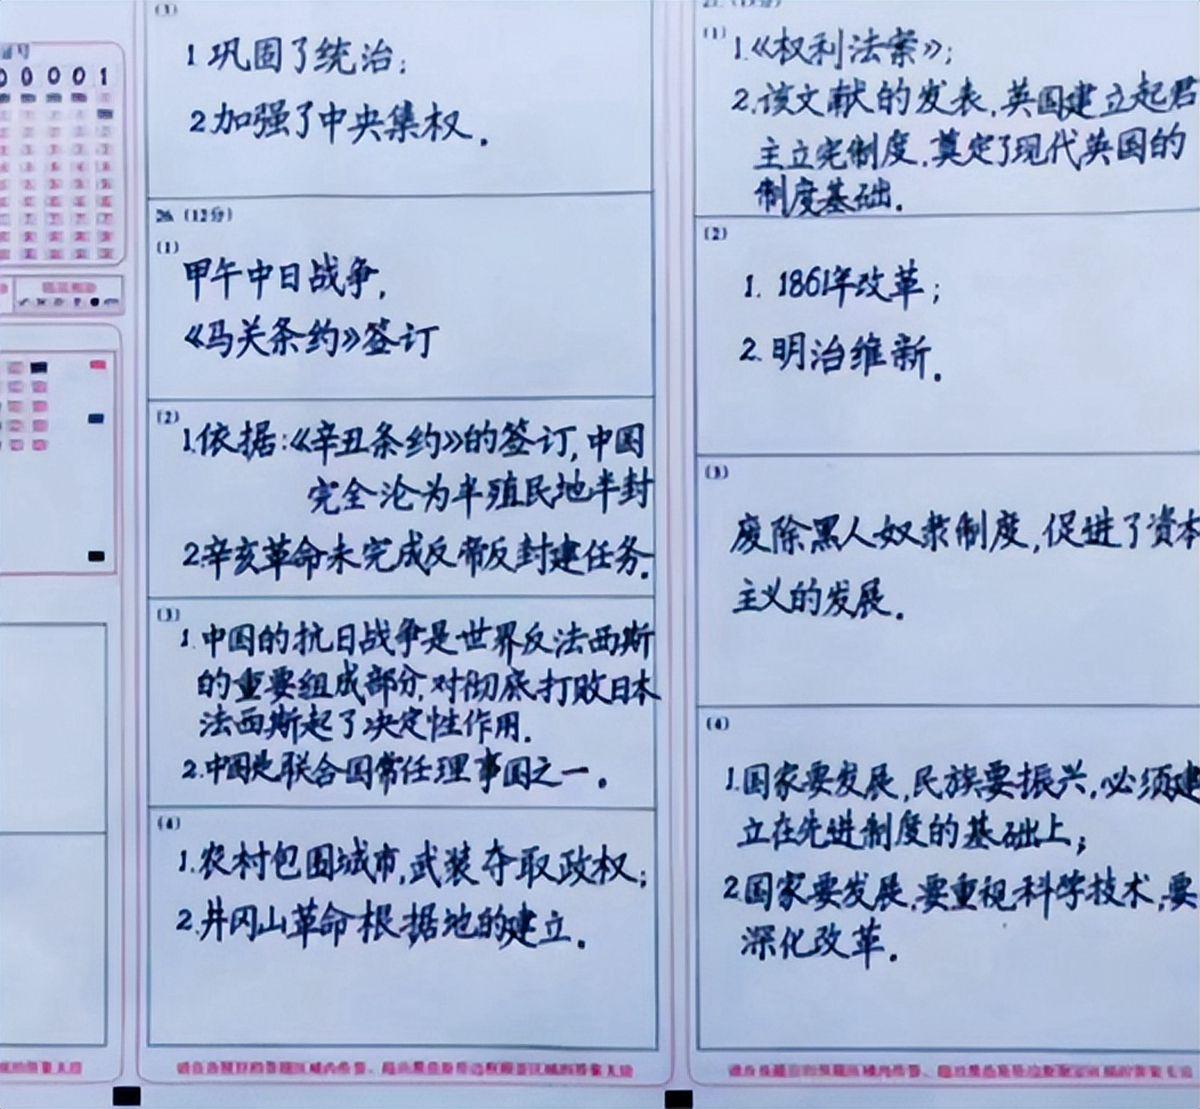 0 0 0 0 1
(3)
1 巩固了统治;
2 加强了中央集权.
26. (12分)
(1)
甲午中日战争,
《马关条约》签订
(2)
1.依据:《辛丑条约》的签订,中国
完全沦为半殖民地半封
2.辛亥革命未完成反帝反封建任务.
(3)
1.中国的抗日战争是世界反法西斯
的重要组成部分,对彻底打败日本
法西斯起了决定性作用.
2.中国是联合国常任理事国之一。
(4)
1.农村包围城市,武装夺取政权;
2.井冈山革命根据地的建立.
(1)
1.《权利法案》;
2.该文献的发表,英国建立起君
主立宪制度,奠定了现代英国的
制度基础.
(2)
1. 1861年改革;
2. 明治维新.
(3)
废除黑人奴隶制度,促进了资本
主义的发展.
(4)
1.国家要发展,民族要振兴,必须建
立在先进制度的基础上;
2.国家要发展,要重视科学技术,要
深化改革.